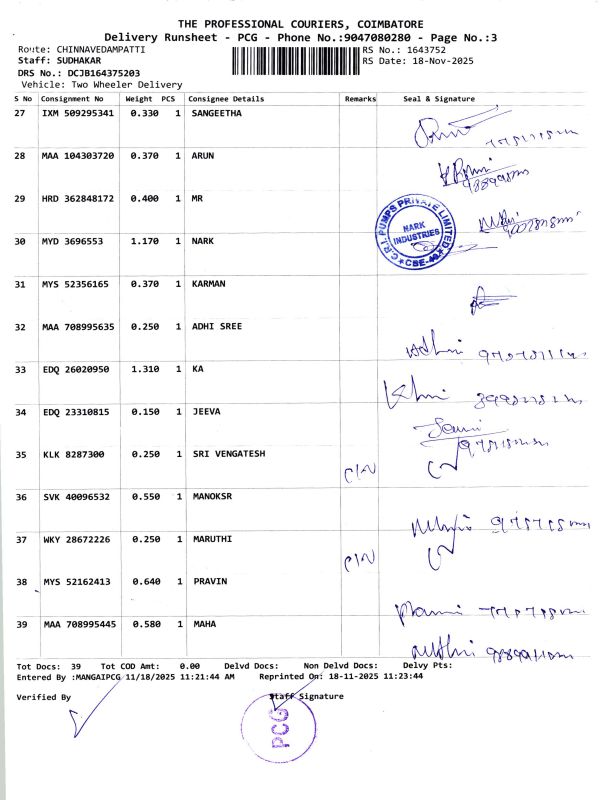 THE PROFESSIONAL COURIERS, COIMBATORE
Delivery Runsheet - PCG - Phone No.:9047080280 - Page No.:3
Route: CHINNAVEDAMPATTI RS No.: 1643752
Staff: SUDHAKAR RS Date: 18-Nov-2025
DRS No.: DCJB164375203
Vehicle: Two Wheeler Delivery
S No Consignment No Weight PCS Consignee Details Remarks Seal & Signature
27 IXM 509295341 0.330 1 SANGEETHA
28 MAA 104303720 0.370 1 ARUN
29 HRD 362848172 0.400 1 MR
C.R.I. PUMPS PRIVATE LIMITED
NARK
INDUSTRIES
CBE-49.
30 MYD 3696553 1.170 1 NARK
31 MYS 52356165 0.370 1 KARMAN
32 MAA 708995635 0.250 1 ADHI SREE
33 EDQ 26020950 1.310 1 KA
34 EDQ 23310815 0.150 1 JEEVA
35 KLK 8287300 0.250 1 SRI VENGATESH
36 SVK 40096532 0.550 1 MANOKSR
37 WKY 28672226 0.250 1 MARUTHI
38 MYS 52162413 0.640 1 PRAVIN
39 MAA 708995445 0.580 1 MAHA
Tot Docs: 39 Tot COD Amt: 0.00 Delvd Docs: Non Delvd Docs: Delvy Pts:
Entered By :MANGAIPCG 11/18/2025 11:21:44 AM Reprinted On: 18-11-2025 11:23:44
Verified By Staff Signature
PCG